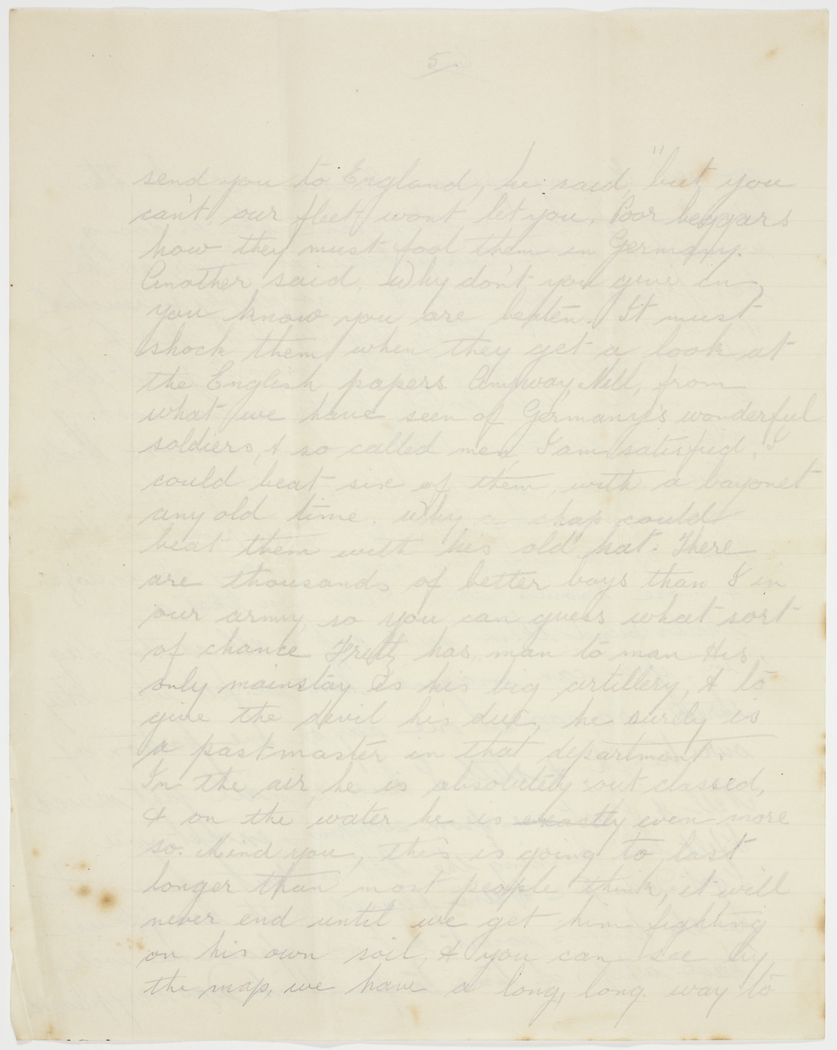 5
send you to England, he said, "but you
can't, our fleet wont let you. Poor beggars
how they must fool them in Germany.
Another said, Why don't you give in,
you know you are beaten. It must
shock them when they get a look at
the English papers. Anyway Nell, from
what we have seen of Germany's wonderful
soldiers, & so called men I am satisfied. I
could beat six of them with a bayonet
any old time. Why a chap could
beat them with his old hat. There
are thousands of better boys than I in
our army, so you can guess what sort
of chance Fritz has man to man. His
only mainstay is his big artillery, & to
give the devil his due, he surely is
a pastmaster in that department.
In the air he is absolutely outclassed,
& on the water he is exactly even more
so. Mind you, this is going to last
longer than most people think, it will
never end until we get him fighting
on his own soil, & you can see by
the map, we have a long, long way to